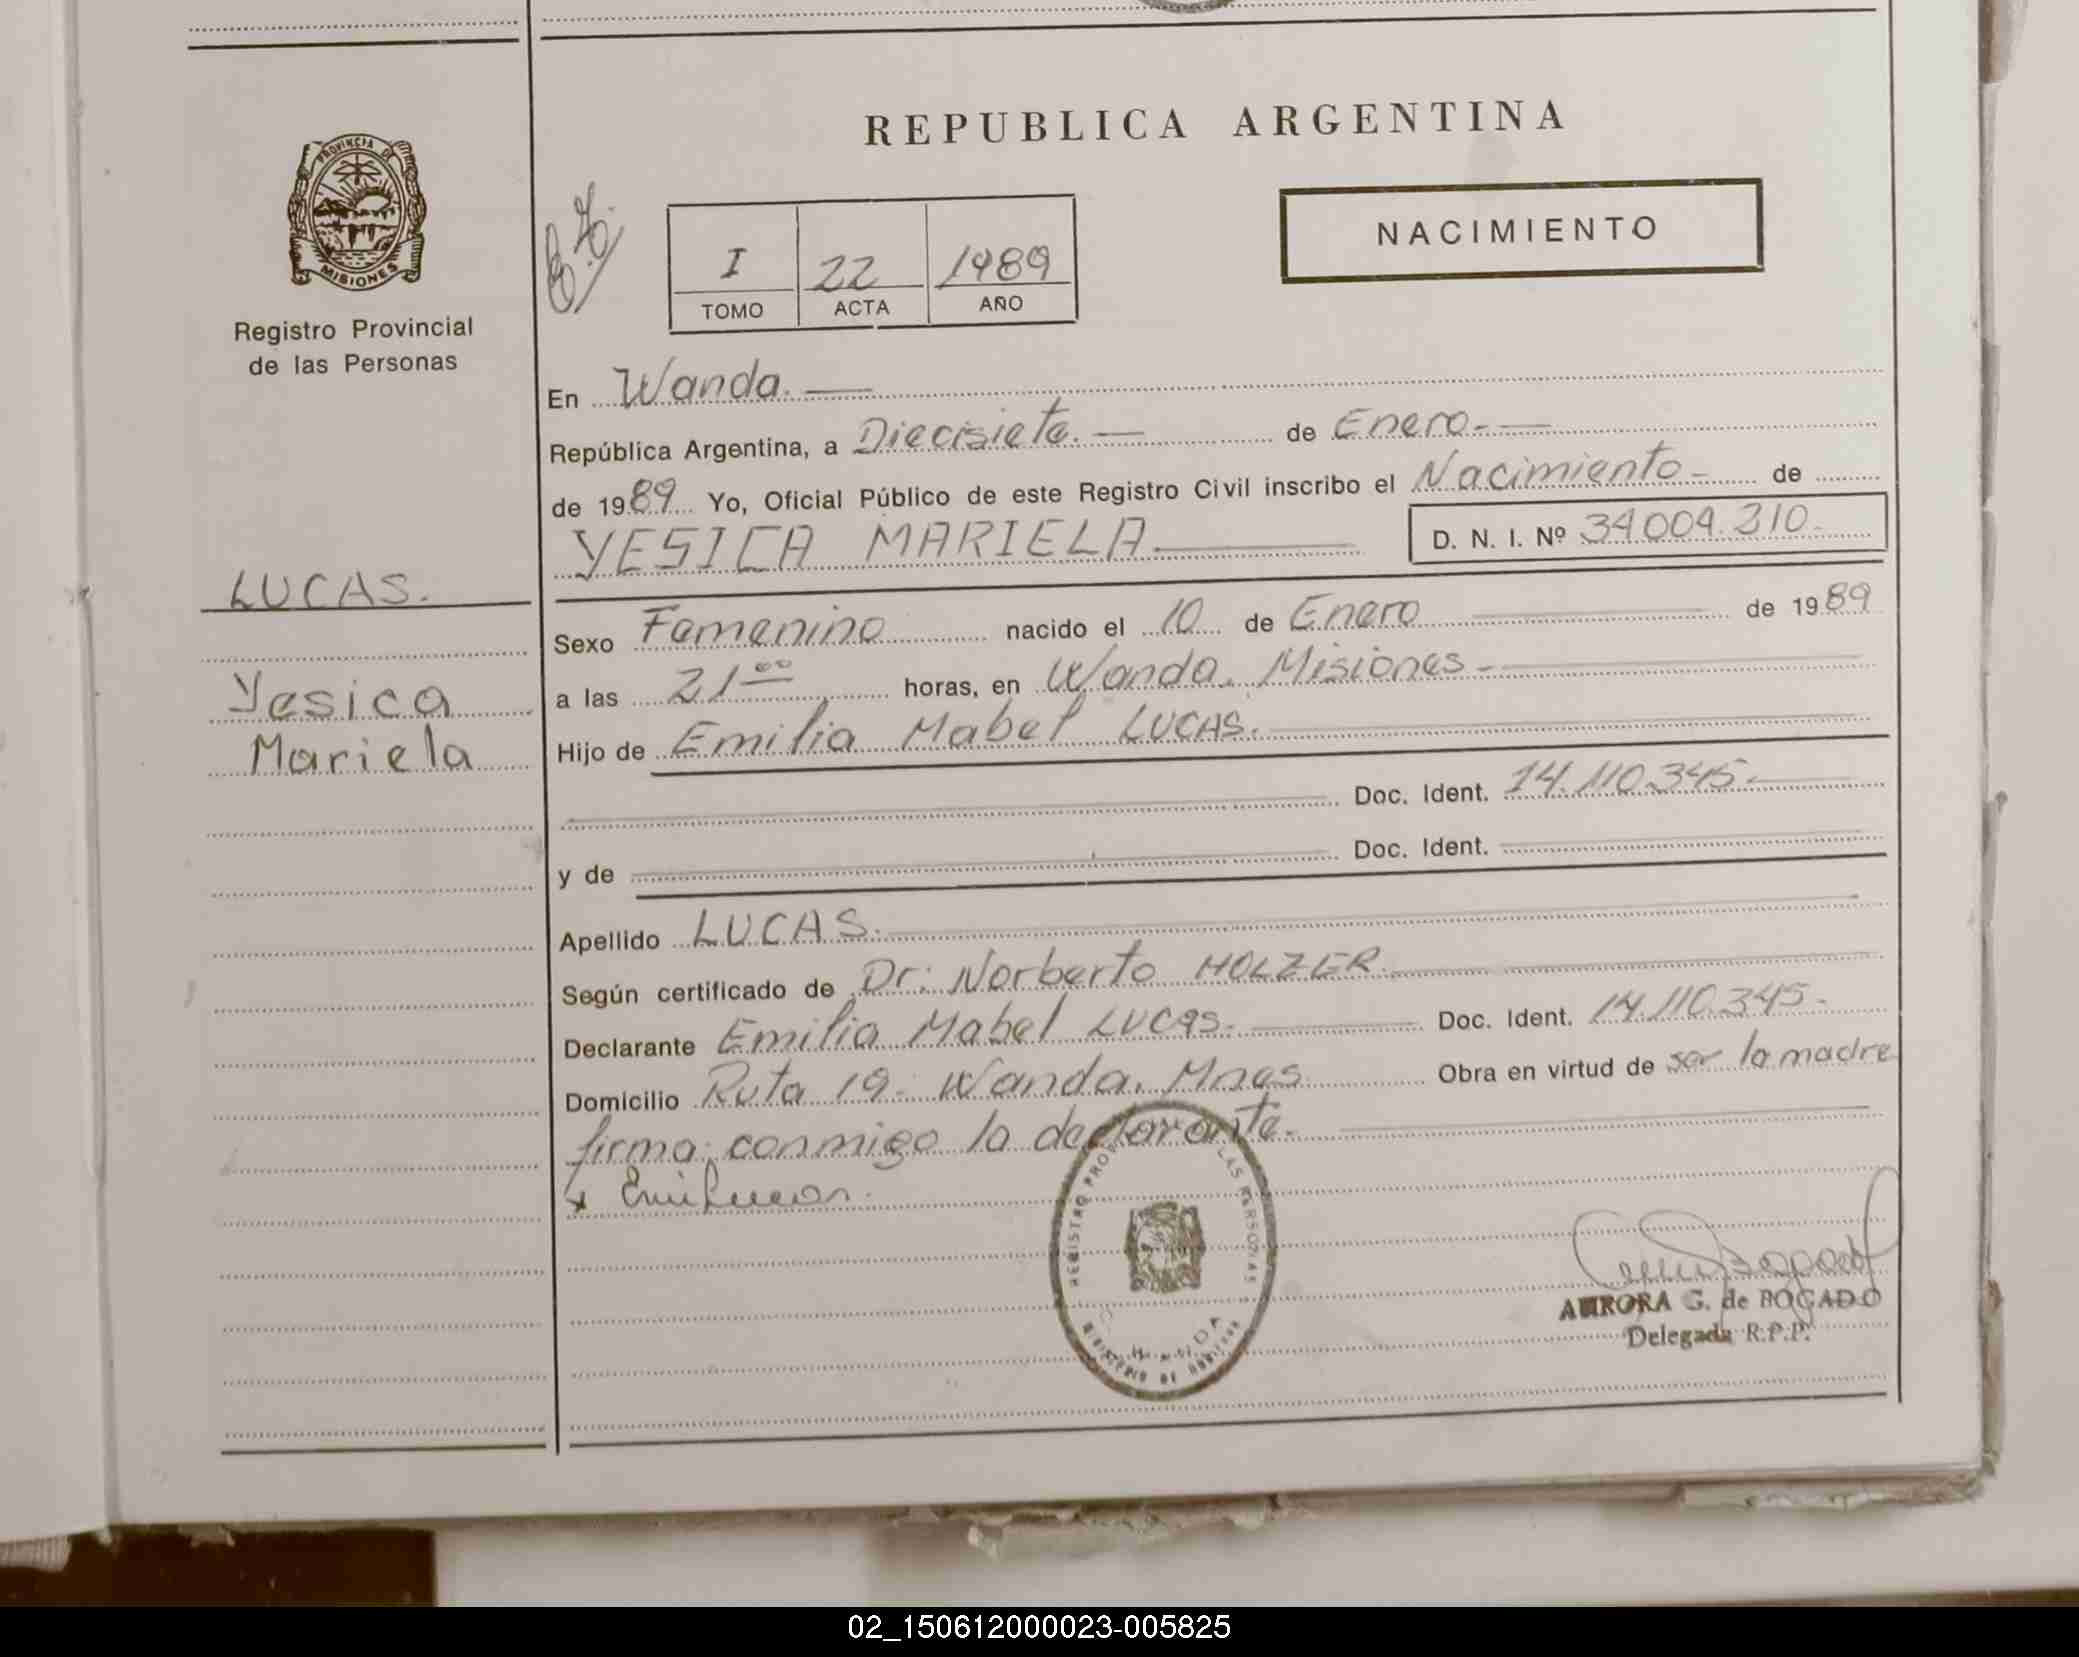 REPUBLICA ARGENTINA
PROVINCIA DE
MISIONES
Registro Provincial
de las Personas
NACIMIENTO
I 22 1989
TOMO ACTA AÑO
En Wanda.
República Argentina, a Diecisiete. de Enero.
de 1989 Yo, Oficial Público de este Registro Civil inscribo el Nacimiento de
YESICA MARIELA D. N. I. Nº 34004.310.
LUCAS.
Yesica
Mariela
Sexo Femenino nacido el 10 de Enero de 1989
a las 21 00 horas, en Wanda. Misiones
Hijo de Emilia Mabel LUCAS.
Doc. Ident. 14.110.345.
y de Doc. Ident.
Apellido LUCAS.
Según certificado de Dr: Norberto HOLZER.
Declarante Emilia Mabel LUCAS. Doc. Ident. 14.110.345.
Domicilio Ruta 19. Wanda. Mnes Obra en virtud de ser la madre
firma conmigo la declarante.
REGISTRO PROVINCIAL DE LAS PERSONAS
WANDA
MINISTERIO DE GOBIERNO
AURORA G. de BOGADO
Delegada R.P.P.
02_150612000023-005825